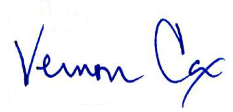 Vernon Cox